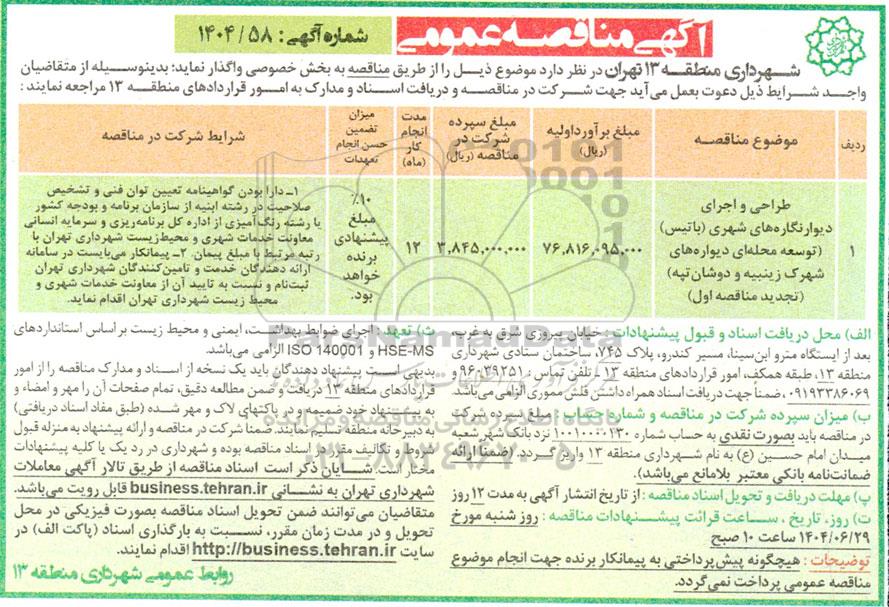 آگهی مناقصه عمومی
شماره آگهی: ۱۴۰۴/۵۸
شهرداری منطقه ۱۳ تهران در نظر دارد موضوع ذیل را از طریق مناقصه به بخش خصوصی واگذار نماید؛ بدینوسیله از متقاضیان
واجد شرایط ذیل دعوت بعمل می‌آید جهت شرکت در مناقصه و دریافت اسناد و مدارک به امور قراردادهای منطقه ۱۳ مراجعه نمایند:
ردیف
موضوع مناقصه
مبلغ برآورد اولیه
(ریال)
مبلغ سپرده
شرکت در
مناقصه (ریال)
مدت
انجام
کار
(ماه)
میزان
تضمین
حسن انجام
تعهدات
شرایط شرکت در مناقصه
۱
طراحی و اجرای
دیوارنگاره‌های شهری (باتیس)
(توسعه محله‌ای دیواره‌های
شهرک زینبیه و دوشان‌تپه)
(تجدید مناقصه اول)
۷۶,۸۱۶,۰۹۵,۰۰۰
۳,۸۴۵,۰۰۰,۰۰۰
۱۲
۱۰٪
مبلغ
پیشنهادی
برنده
خواهد
بود.
۱ـ دارا بودن گواهینامه تعیین توان فنی و تشخیص
صلاحیت در رشته ابنیه از سازمان برنامه و بودجه کشور
یا رشته رنگ‌آمیزی از اداره کل برنامه‌ریزی و سرمایه انسانی
معاونت خدمات شهری و محیط‌زیست شهرداری تهران با
رتبه مرتبط با مبلغ پیمان ۲ـ پیمانکار می‌بایست در سامانه
ارائه دهندگان خدمت و تامین‌کنندگان شهرداری تهران
ثبت‌نام و نسبت به تایید آن از معاونت خدمات شهری و
محیط زیست شهرداری تهران اقدام نماید.
الف) محل دریافت اسناد و قبول پیشنهادات: خیابان پیروزی شرق به غرب،
بعد از ایستگاه مترو ابن‌سینا، مسیر کندرو، پلاک ۷۴۵، ساختمان ستادی شهرداری
منطقه ۱۳، طبقه همکف، امور قراردادهای منطقه ۱۳ ـ تلفن تماس: ۹۶۰۳۹۲۵۱ و
۰۹۱۹۳۳۸۶۰۶۹ ضمناً جهت دریافت اسناد همراه داشتن فلش مموری الزامی می‌باشد.
ب) میزان سپرده شرکت در مناقصه و شماره حساب: مبلغ سپرده شرکت
در مناقصه باید بصورت نقدی به حساب شماره ۱۰۰۱۰۰۰۰۱۳۰ نزد بانک شهر شعبه
میدان امام حسین (ع) به نام شهرداری منطقه ۱۳ واریز گردد. (ضمناً ارائه
ضمانت‌نامه بانکی معتبر بلامانع می‌باشد).
پ) مهلت دریافت و تحویل اسناد مناقصه: از تاریخ انتشار آگهی به مدت ۱۲ روز
ت) روز، تاریخ، ساعت قرائت پیشنهادات مناقصه: روز شنبه مورخ
۱۴۰۴/۰۶/۲۹ ساعت ۱۰ صبح
توضیحات: هیچگونه پیش‌پرداختی به پیمانکار برنده جهت انجام موضوع
مناقصه عمومی پرداخت نمی‌گردد.
ث) تعهد: اجرای ضوابط بهداشت، ایمنی و محیط زیست بر اساس استانداردهای
HSE-MS و ISO 140001 الزامی می‌باشد.
بدیهی است پیشنهاد دهندگان باید یک نسخه از اسناد و مدارک مناقصه را از امور
قراردادهای منطقه ۱۳ دریافت و ضمن مطالعه دقیق، تمام صفحات آن را مهر و امضاء و
به پیشنهاد خود ضمیمه و در پاکتهای لاک و مهر شده (طبق مفاد اسناد دریافتی)
به دبیرخانه منطقه تسلیم نمایند. ضمنا شرکت در مناقصه و ارائه پیشنهاد به منزله قبول
شروط و تکالیف مقرر در اسناد مناقصه بوده و شهرداری در رد یک یا کلیه پیشنهادات
مختار است. شایان ذکر است اسناد مناقصه از طریق تالار آگهی معاملات
شهرداری تهران به نشانی business.tehran.ir قابل رویت می‌باشد.
متقاضیان می‌توانند ضمن تحویل اسناد مناقصه بصورت فیزیکی در محل
تحویل و در مدت زمان مقرر، نسبت به بارگذاری اسناد (پاکت الف) در
سایت http://business.tehran.ir اقدام نمایند.
روابط عمومی شهرداری منطقه ۱۳
ParsNamadData